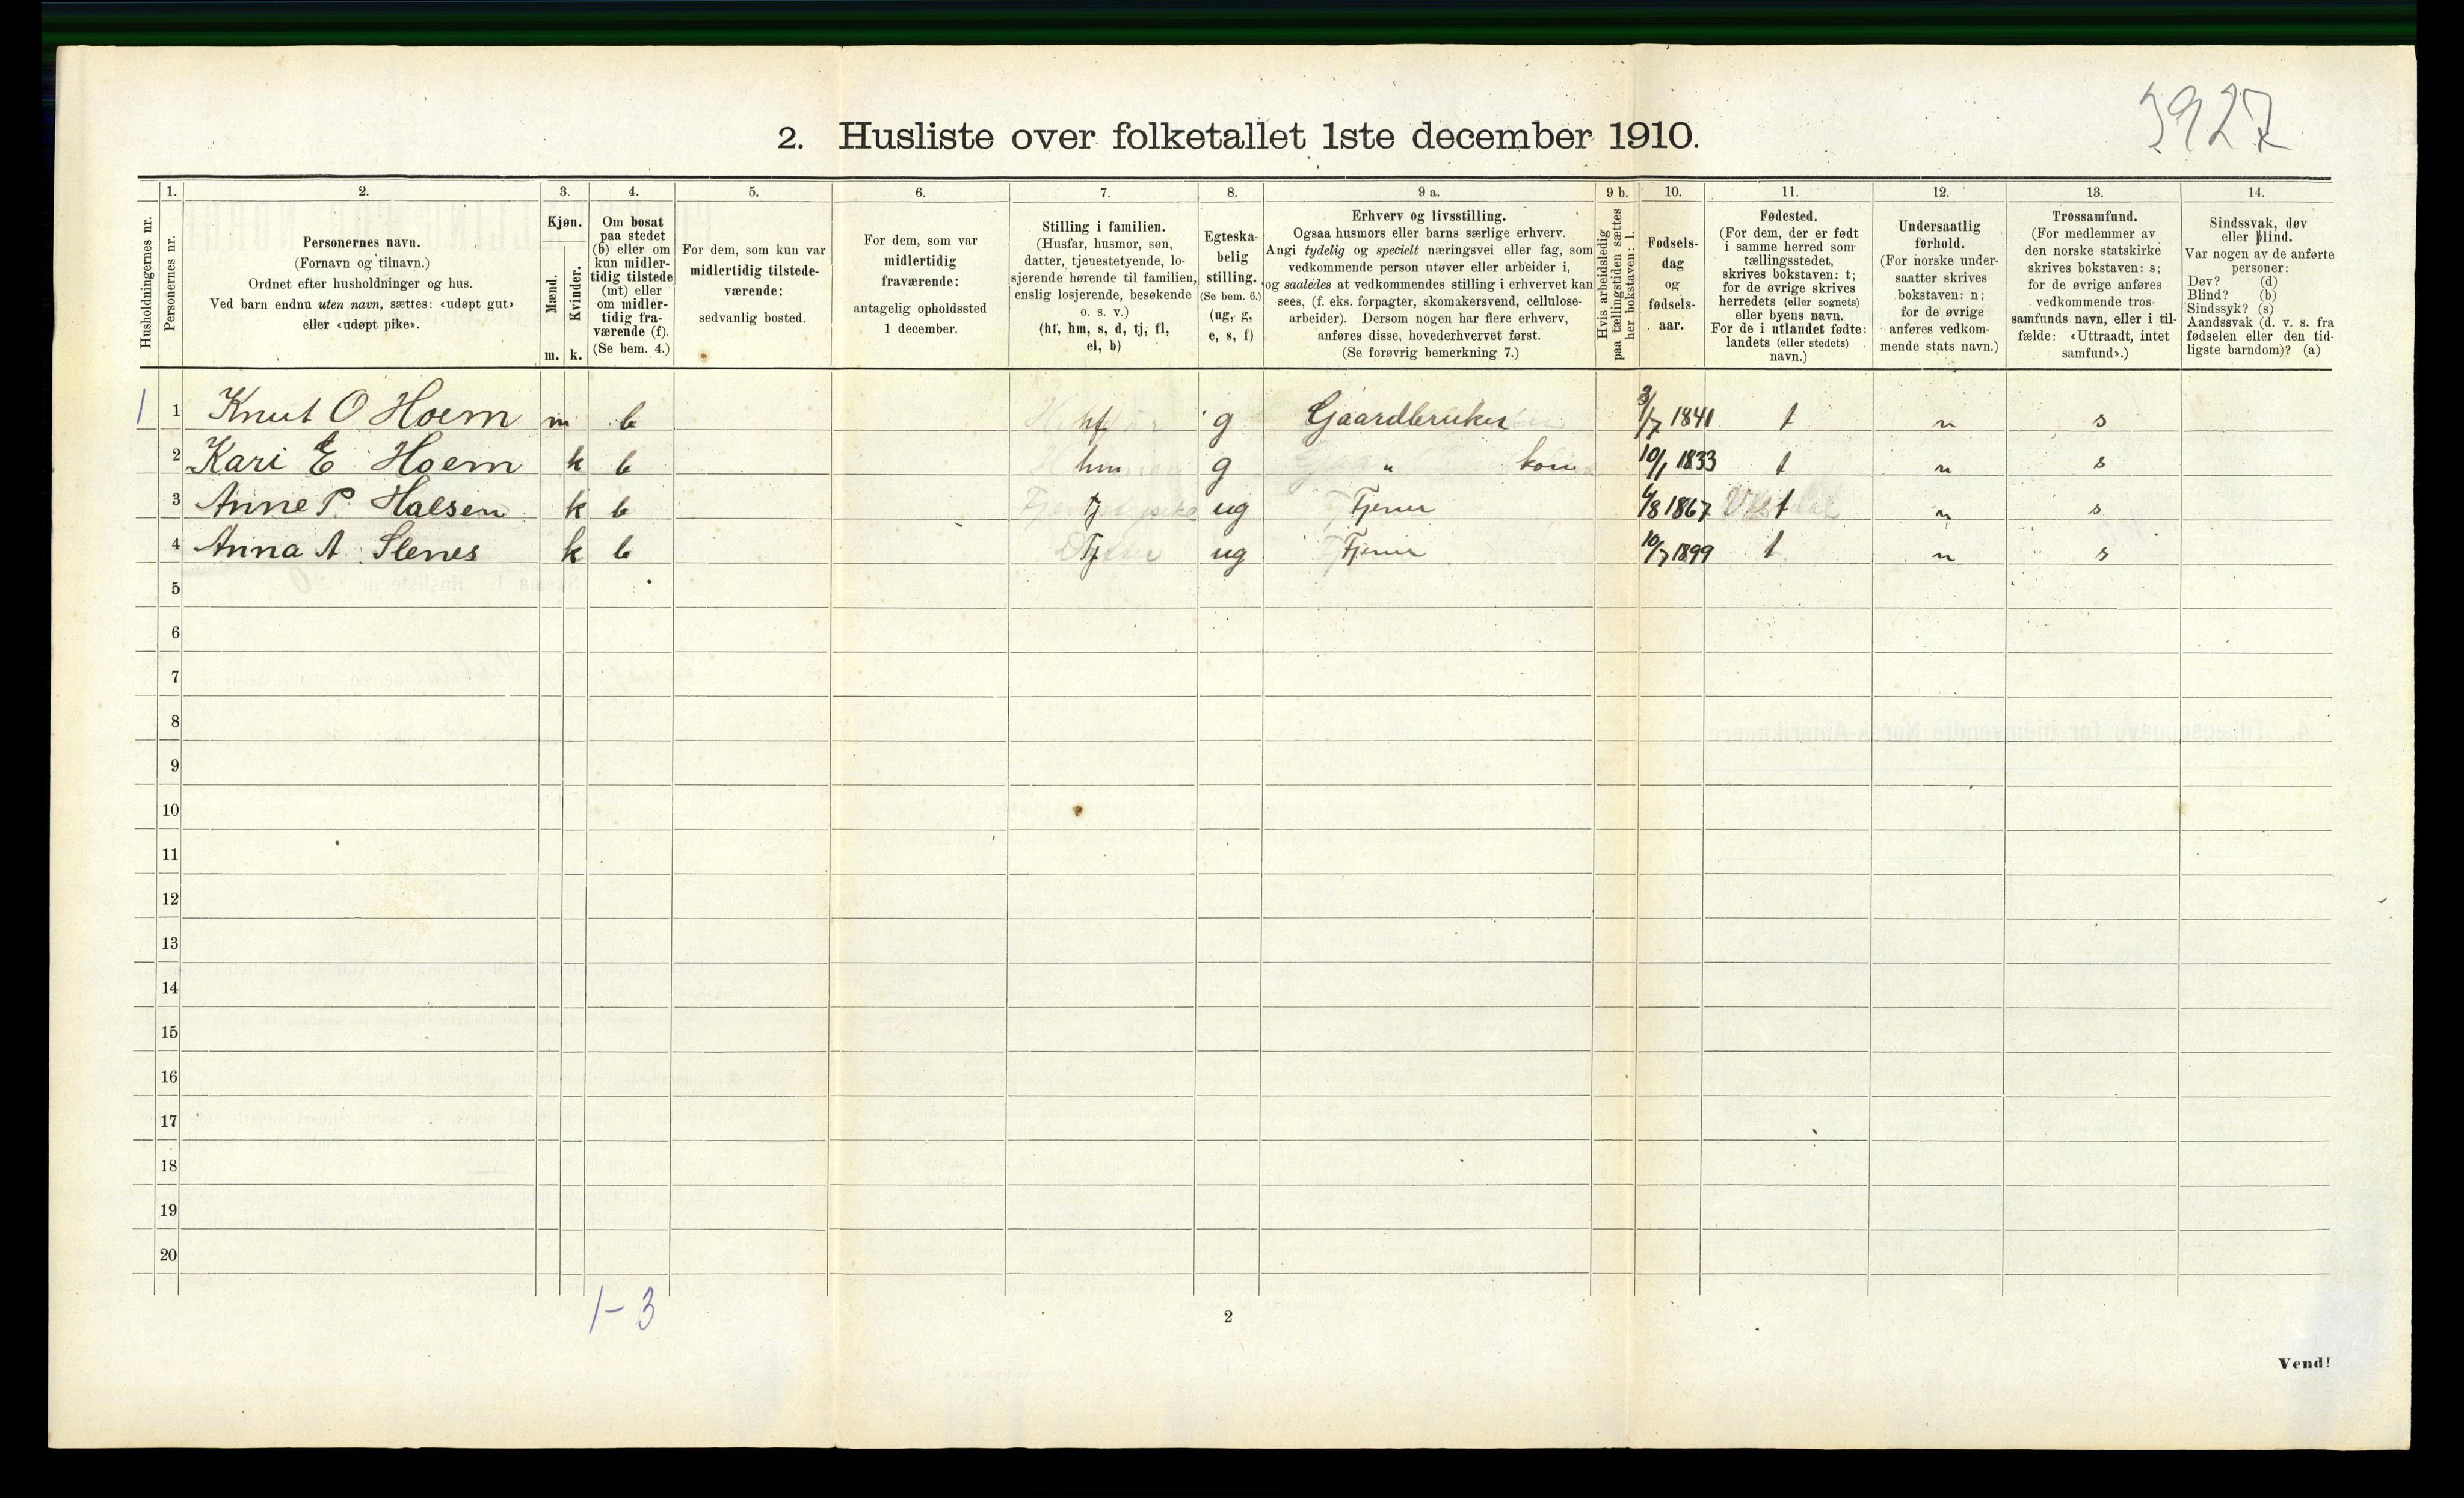 3927
2. Husliste over folketallet 1ste december 1910.
Husholdningernes nr.
1.
Personernes nr.
2.
Personernes navn.
(Fornavn og tilnavn.)
Ordnet efter husholdninger og hus.
Ved barn endnu uten navn, sættes: «udøpt gut»
eller «udøpt pike».
3.
Kjøn.
Mænd.
Kvinder.
m. k.
4.
Om bosat
paa stedet
(b) eller om
kun midler-
tidig tilstede
(mt) eller
om midler-
tidig fra-
værende (f).
(Se bem. 4.)
5.
For dem, som kun var
midlertidig tilstede-
værende:
sedvanlig bosted.
6.
For dem, som var
midlertidig
fraværende:
antagelig opholdssted
1 december.
7.
Stilling i familien.
(Husfar, husmor, søn,
datter, tjenestetyende, lo-
sjerende hørende til familien,
enslig losjerende, besøkende
o. s. v.)
(hf, hm, s, d, tj, fl,
el, b)
8.
Egteska-
belig
stilling.
(Se bem. 6.)
(ug, g,
e, s, f)
9 a.
Erhverv og livsstilling.
Ogsaa husmors eller barns særlige erhverv.
Angi tydelig og specielt næringsvei eller fag, som
vedkommende person utøver eller arbeider i,
og saaledes at vedkommendes stilling i erhvervet kan
sees, (f. eks. forpagter, skomakersvend, cellulose-
arbeider). Dersom nogen har flere erhverv,
anføres disse, hovederhvervet først.
(Se forøvrig bemerkning 7.)
9 b.
Hvis arbeidsledig
paa tællingstiden sættes
her bokstaven: l.
10.
Fødsels-
dag
og
fødsels-
aar.
11.
Fødested.
(For dem, der er født
i samme herred som
tællingsstedet,
skrives bokstaven: t;
for de øvrige skrives
herredets (eller sognets)
eller byens navn.
For de i utlandet fødte:
landets (eller stedets)
navn.)
12.
Undersaatlig
forhold.
(For norske under-
saatter skrives
bokstaven: n;
for de øvrige
anføres vedkom-
mende stats navn.)
13.
Trossamfund.
(For medlemmer av
den norske statskirke
skrives bokstaven: s;
for de øvrige anføres
vedkommende tros-
samfunds navn, eller i til-
fælde: «Uttraadt, intet
samfund».)
14.
Sindssvak, døv
eller blind.
Var nogen av de anførte
personer:
Døv? (d)
Blind? (b)
Sindssyk? (s)
Aandssvak (d. v. s. fra
fødselen eller den tid-
ligste barndom)? (a)
1 1 Knut O Hoem m b hf g Gaardbruker 3/7 1841 t n s
2 Kari E Hoem k b hm g " kone 10/1 1833 t n s
3 Anne P. Halsen k b tj ug Tjener 6/8 1867 t n s
4 Anna A. Slenes k b Tj ug Tjener 10/7 1899 t n s
5
6
7
8
9
10
11
12
13
14
15
16
17
18
19
20
1-3
2
Vend!